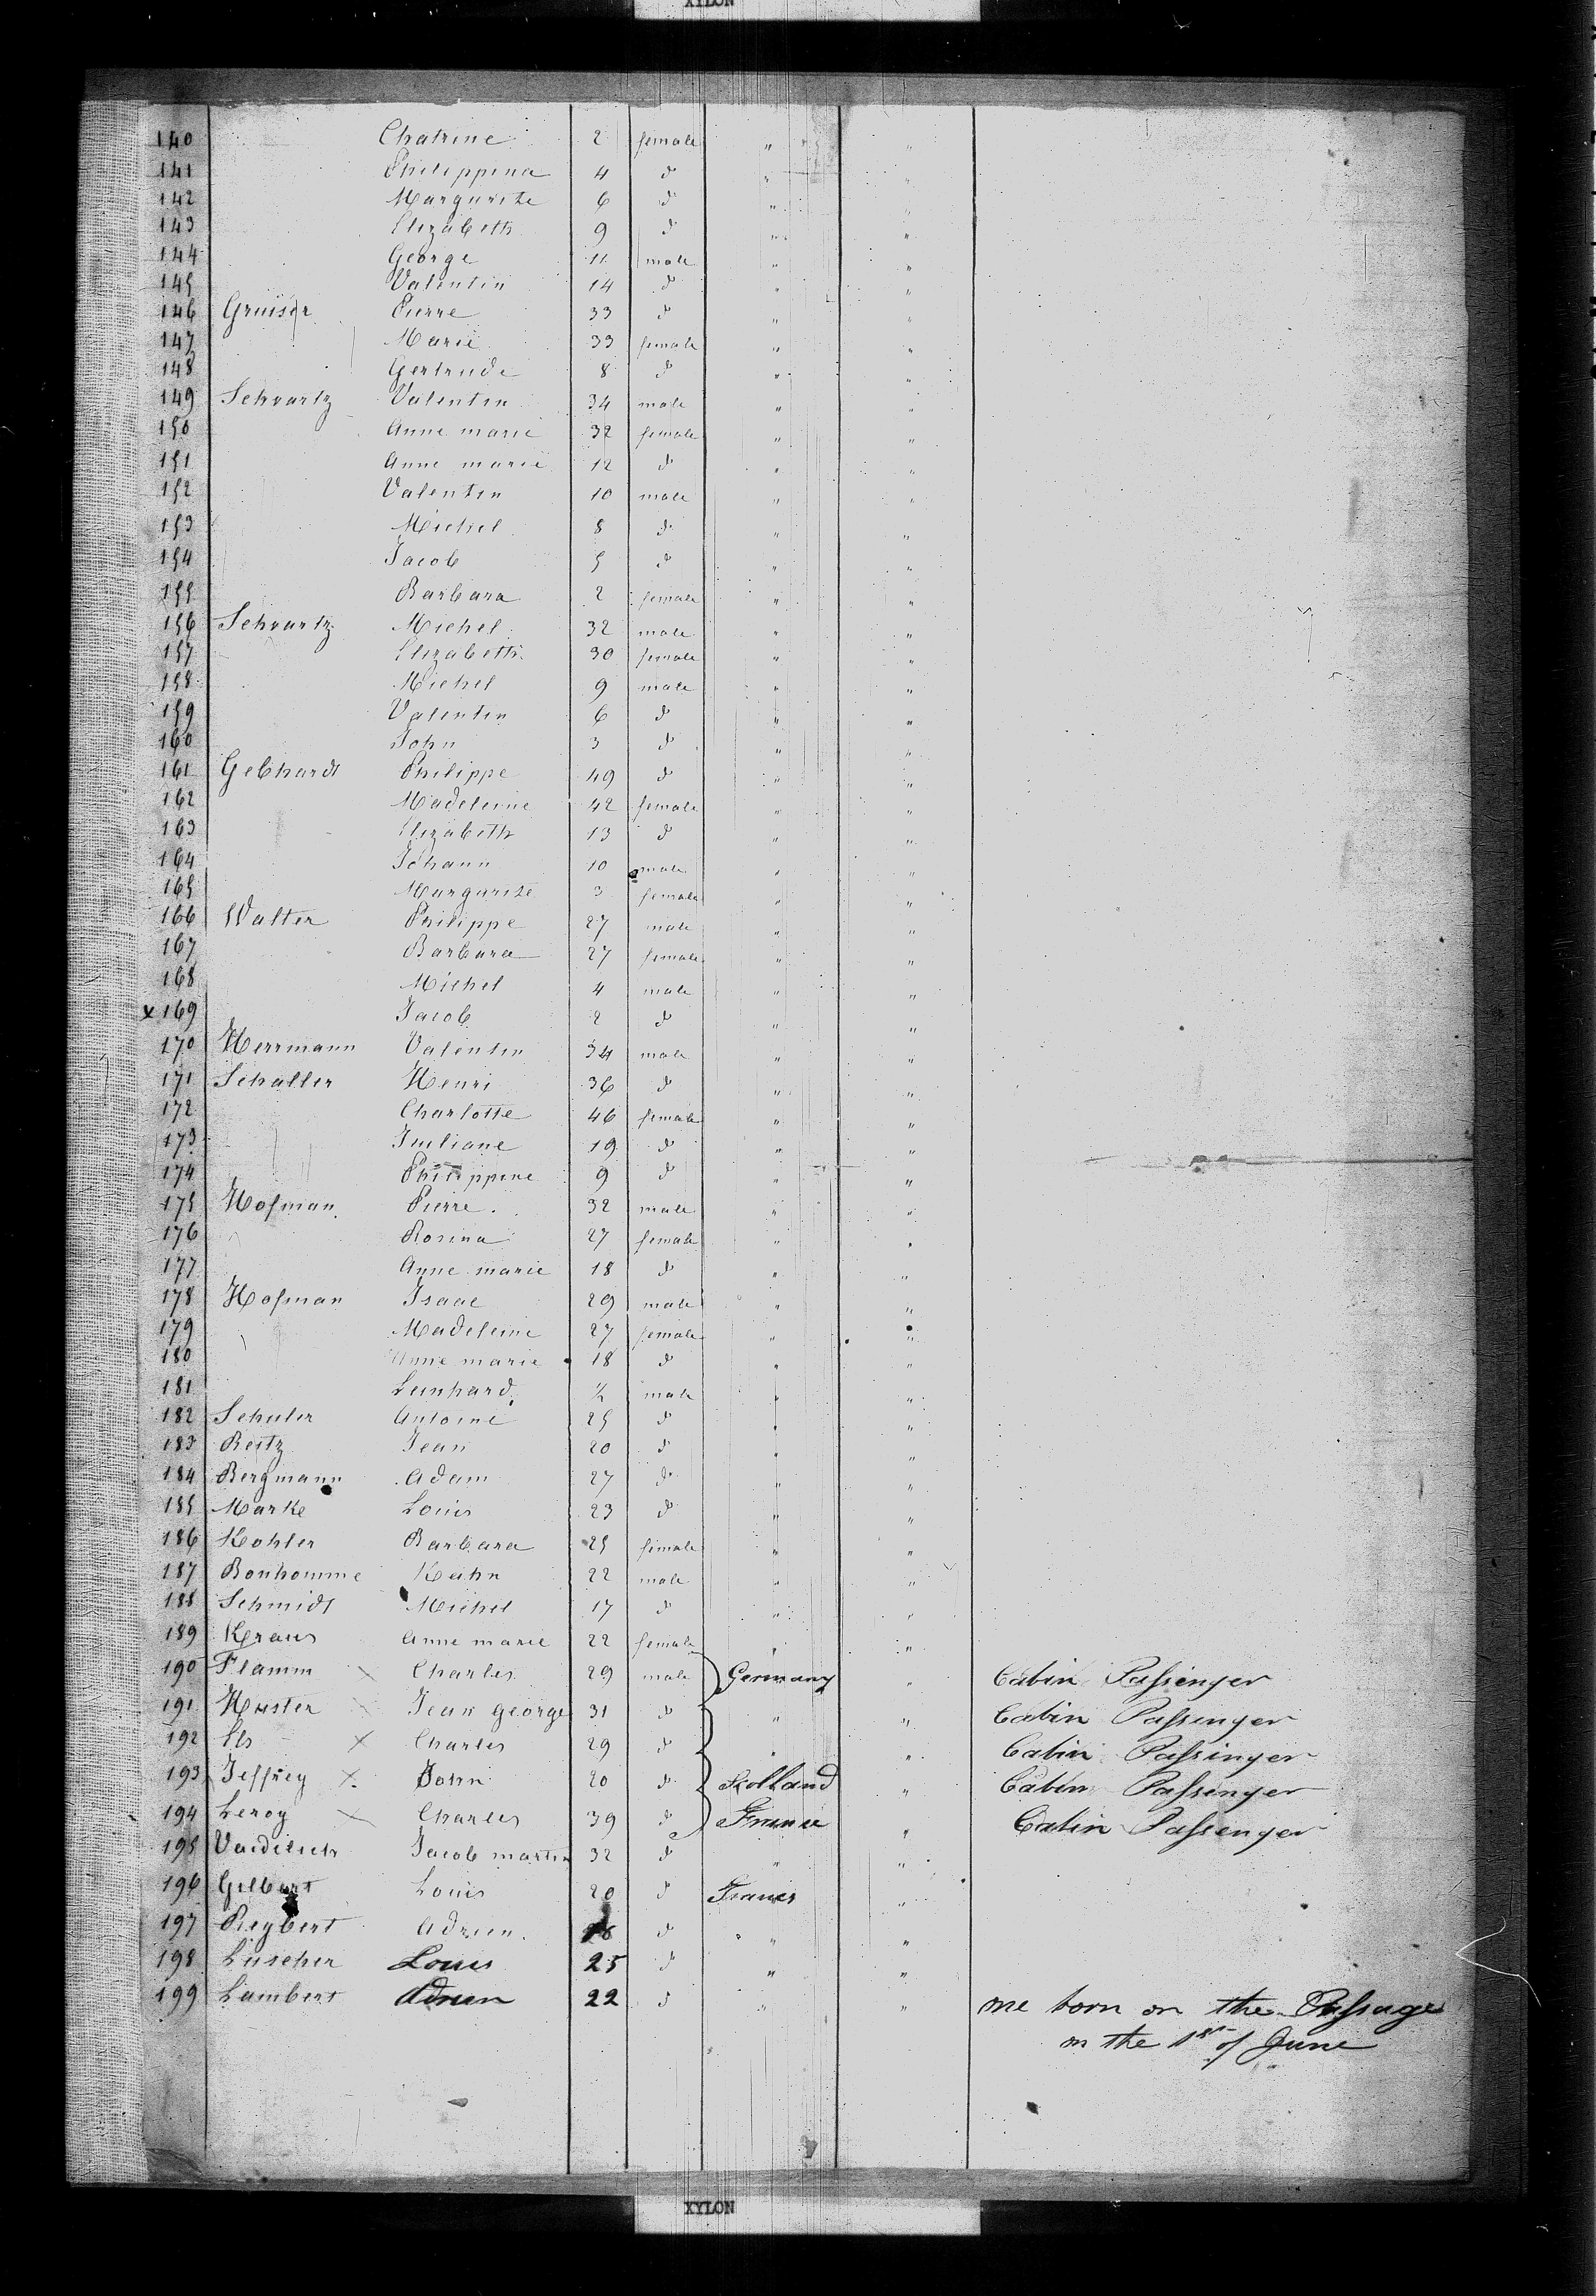 XYLON
140 Chatrine 2 female " "
141 Philippina 4 do " "
142 Margurite 6 do " "
143 Elizabeth 9 do " "
144 George 11 male " "
145 Valentin 14 do " "
146 Gruisier Pierre 33 do " "
147 Marie 33 female " "
148 Gertrude 8 do " "
149 Schvartz Valentin 34 male " "
150 Anne marie 32 female " "
151 Anne marie 12 do " "
152 Valentin 10 male " "
153 Michel 8 do " "
154 Jacob 5 do " "
155 Barbara 2 female " "
156 Schvartz Michel 32 male " "
157 Elizabeth 30 female " "
158 Michel 9 male " "
159 Valentin 6 do " "
160 John 3 do " "
161 Gebhardt Philippe 49 do " "
162 Madeleine 42 female " "
163 Elizabeth 13 do " "
164 Johann 10 male " "
165 Margurite 3 female " "
166 Walter Philippe 27 male " "
167 Barbara 27 female " "
168 Michel 4 male " "
x 169 Jacob 2 do " "
170 Herrmann Valentin 34 male " "
171 Schaller Henri 36 do " "
172 Charlotte 46 female " "
173 Juliane 19 do " "
174 Philippine 9 do " "
175 Hofman Pierre 32 male " "
176 Rosina 27 female " "
177 Anne marie 18 do " "
178 Hofman Isaac 29 male " "
179 Madeleine 27 female " "
180 Anne marie 18 do " "
181 Leinhard 1/2 male " "
182 Schuler Antoine 25 do " "
183 Reitz Jean 20 do " "
184 Bergmann Adam 27 do " "
185 Marke Louis 23 do " "
186 Kohler Barbara 25 female " "
187 Bonhomme Kahn 22 male " "
188 Schmidt Michel 17 do " "
189 Kraus Anne marie 22 female " "
190 Flamm x Charles 29 male Germany " Cabin Passenger
191 Huster x Jean George 31 do " " Cabin Passenger
192 Els x Charles 29 do " " Cabin Passenger
193 Jeffrey x John 20 do Scotland " Cabin Passenger
194 Leroy x Charles 39 do France " Cabin Passenger
195 Jacob martin 32 do " "
196 Gilbert Louis 20 do France "
197 Reybert Adrien do " "
198 Luscher Louis 25 do " "
199 Lambert Adrien 22 do " " one born on the Passage
on the 1st of June
XYLON